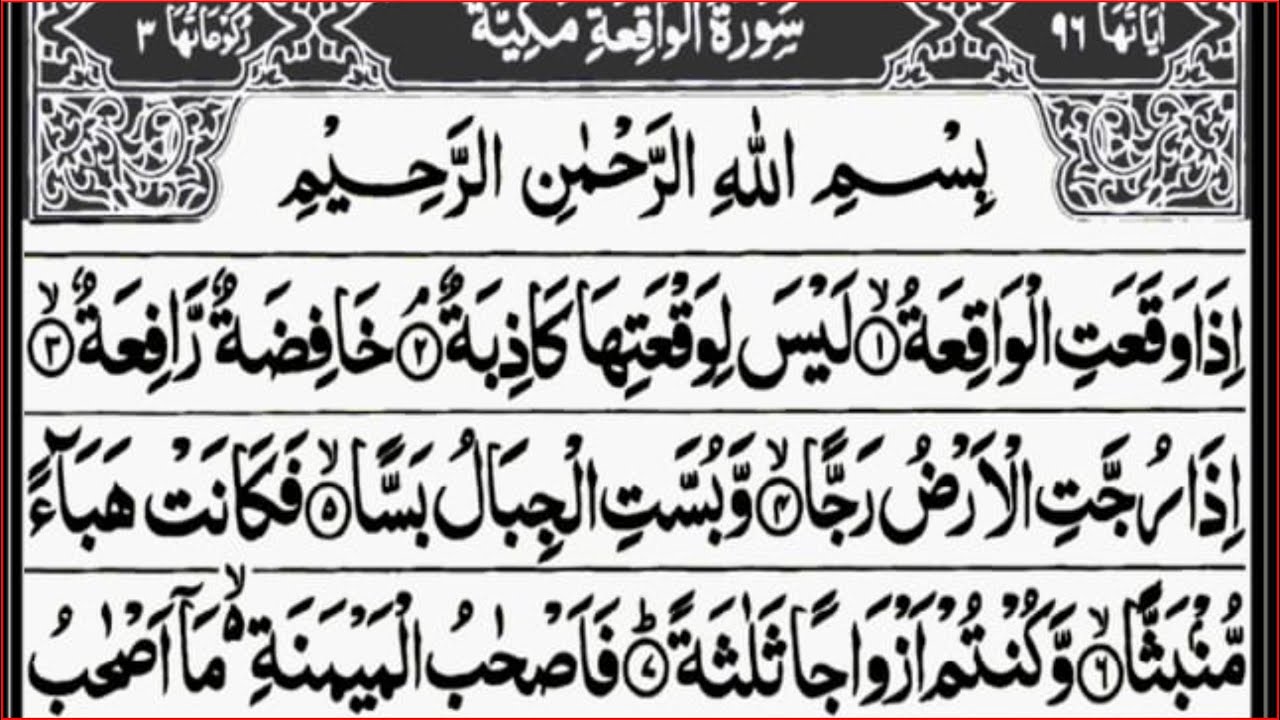 اٰيَاتُهَا ٩٦ سُوْرَةُ الْوَاقِعَةِ مَكِّيَّةٌ رُكُوْعَاتُهَا ٣
بِسْمِ اللهِ الرَّحْمٰنِ الرَّحِيْمِ
اِذَا وَقَعَتِ الْوَاقِعَةُ ۙ﴿۱﴾ لَيْسَ لِوَقْعَتِهَا كَاذِبَةٌ ۘ﴿۲﴾ خَافِضَةٌ رَّافِعَةٌ ۙ﴿۳﴾
اِذَا رُجَّتِ الْاَرْضُ رَجًّا ۙ﴿۴﴾ وَّبُسَّتِ الْجِبَالُ بَسًّا ۙ﴿۵﴾ فَكَانَتْ هَبَآءً
مُّنْۢبَثًّا ۙ﴿۶﴾ وَّكُنْتُمْ اَزْوَاجًا ثَلٰثَةً ؕ﴿۷﴾ فَاَصْحٰبُ الْمَيْمَنَةِ ۙ۵ مَآ اَصْحٰبُ